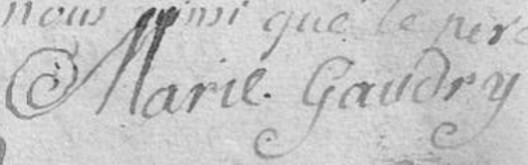 nous ainsi que le pere
Marie Gaudry